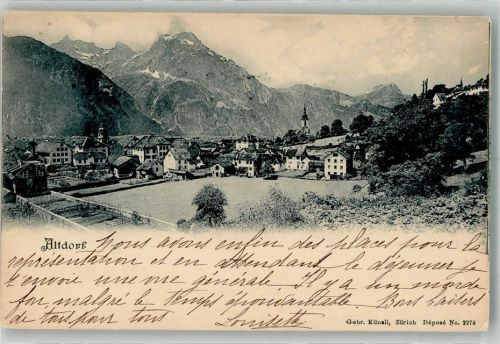 Altdorf
Nous avons enfin des places pour la
représentation et en attendant le déjeuner je
t'envoie une vue générale. Il y a un monde
fou malgré le temps épouvantable Bons baisers
de tous pour tous Louisette
Gebr. Künzli, Zürich Déposé No. 2274